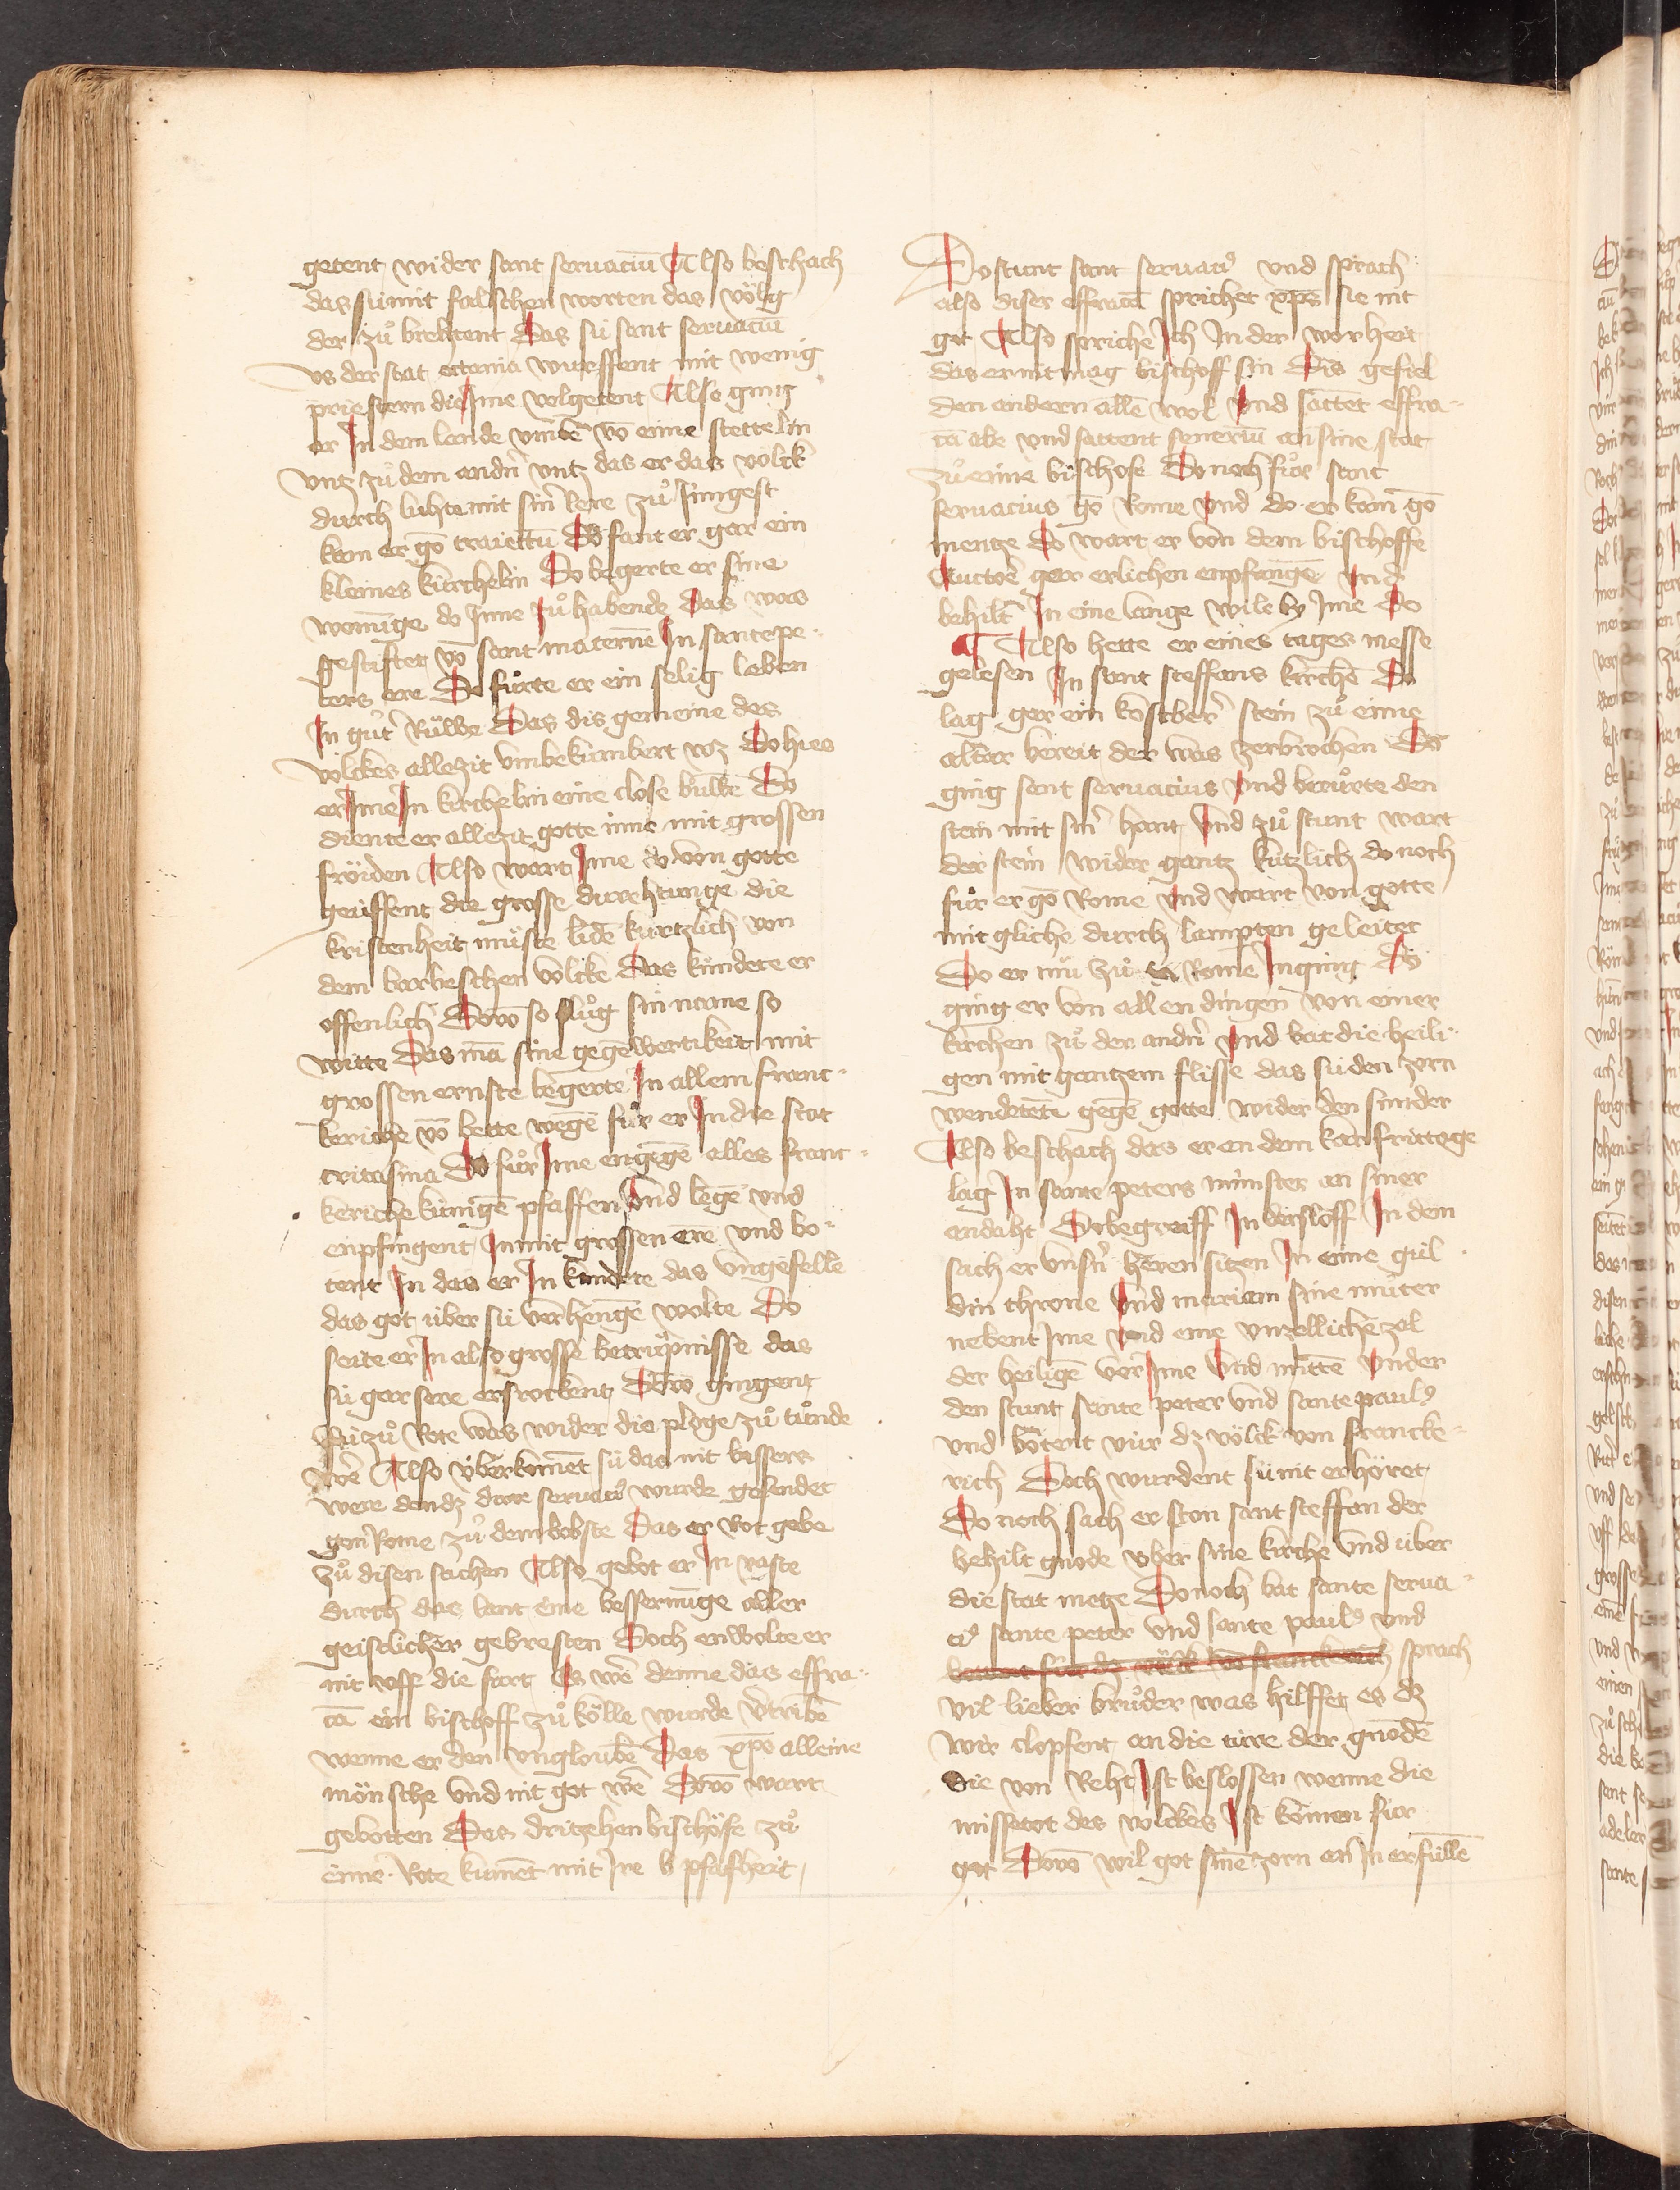 getent wider sant seruaciu̅ Also beschach
das sü mit falschen worten das völg
der zů brehtent das sü sant seruaciu̅
vs der stat octania wurffent mit wenig
priestern die Jme volgetent Also ging
er In dem lande vmbe vo̅ eime stettelin
vntz zů dem andn̄ vntz das er das völck
durch luhte mit sin̄ lere zů Jungest
kam er go̅ traiectu̅ Do fant er gar ein
kleines kirchelin Do begerte er sine
wonu̅ge do Jnne zů habende Das was
gestiftet vo̅ sant materne̅ In sante pe-
ters ere Do fůrte er ein selig leben
In gůt̄ Růwe Das dis gemeine des
völckes allezit vmbekümbert wz Do hies
er Jme In kirchelin eine close buwe̅ Do
diente er allezit gotte inne mit grossen
fröiden Also wart Jme do von gotte
geüffent die grosse durehtunge die
kristenheit müste lide̅ kurtzlich von
dem barbeschen völcke Das kündete er
offenlich Dovo̅ so flůg sin name so
witte Das ma̅ sine gege̅wertikeit mit
grossen ernste begerte In allem franck-
keriche vo̅ bette wege̅ fůr er In die stat
tritasina Do fůr Jme engege̅ alles franck-
keriche künige̅ pfaffen vnd lege̅ vnd
enpfingent In mit grossen ere̅ vnd bo-
tent In das er In kündete das vngefelle
das got über sü verhenge̅ wolte Do
seite er In also grosse betrüpnisse das
sü gar sere erfrocken̄t Dovo̅ gingent
sü zů Rote was wider die ploge zů tůnde
were Also vberkoment sü das nit bessers
were den dz daz seruaci9 wurde gesendet
gon Rome zů dem bobste Das er Rot gebe
zů disen sachen Also gebot er In vaste
durch das lant eine besserunge aller
geistlicher gebresten Doch enwolte er
nit vff die fart Es we̅ denne das effra-
ta̅ ein bischoff zů kölle wurde v̄tribe̅
wenne er den vngloube̅ Das xp̅s alleine
mönsche vnd nit got we̅ Dovo̅ wart
gebotten Das dritzehen bischöfe zů
eime Rote kument mit Ire pfafheit
Do stunt sant seruaci9 vnd sprach
also diser effrata̅ sprichet xp̅s sie nit
got Also spriche Ich In der worheit
das er nit mag bischoff sin Dis gefiel
den andern alle̅ wol vnd sattet effra-
ta̅ abe vnd sattent seueriu̅ an sine stat
zů eime bischofe Do noch fůr sant
seruacius go̅ Rome vnd do er kam go̅
mentze Do wart er von dem bischoffe
Auctore gar erlichen enpfange̅ vnd
behilt In eine lange wile by Jme Do
Also hette er eines tages messe
gelesen In sant steffans kirche̅ Do
lag gar ein kostber̄ stein zů eime
altar bereit der was zerbrochen Do
ging sant seruacius vnd berůrte den
stein mit sin̄ hant vnd zů stunt wart
der stein wider gantz kürtzlich do noch
fůr er go̅ Rome vnd wart von gotte
mit gliche durch lampten geleitet
Do er nů zů Rome Inging Do
ging er von allen dingen von einer
kirchen zů der andn̄ vnd bat die heili-
gen mit gantzem flisse das sü den zorn
wendetent gege̅ gotte wider den sünder
Also beschach das er an dem karfrittage
lag In sante peters münster an siner
andaht Do begreiff In der sloff In dem
sach er vnsn̄ heren sitzen In eime gül
din throne vnd mariam sine můter
nebent Jme vnd eine vnzelliche zal
der heilige̅ vor Jme vnd mitte̅ vnder
den stunt sante peter vnd sante paul9
vnd botent vür dz völck von francke-
rich Doch wurdent sü nit erhöret
Do noch sach er ston sant steffan der
behilt gnode vber sine kirche vnd über
die stat metze Do noch bat sante serua-
ci9 sante peter vnd sante paul9 vnd
botent für dz völck vo̅ franckerich sprach
vil lieber brůder was hilffet es dz
wir clopfent an die türe der gnode̅
Die von Reht Ist beslossen wenne die
missetot des völckes Ist komen für
got Dovo̅ wil got sine̅ zorn an In erfülle̅